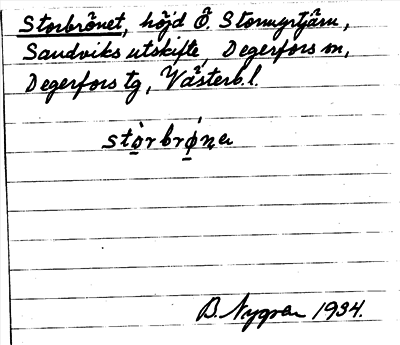 Storbrönet, höjd Ö. Stormyrtjärn,
Sandviks utskifte, Degerfors sn,
Degerfors tg, Västerb. l.
stòrbrǿna
B. Nygren 1934.